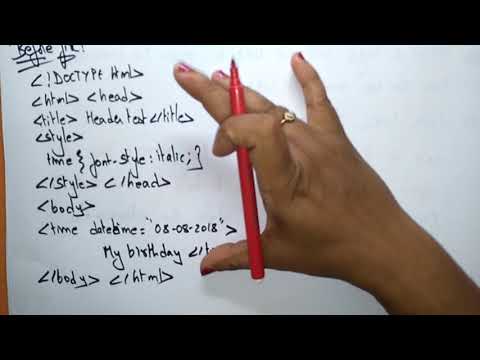 Before fix!
<!DOCTYPE html>
<html> <head>
<title> Header test </title>
<style>
time { font-style: italic; }
</style> </head>
<body>
<time datetime="08-08-2018">
My birthday </t
</body> </html>